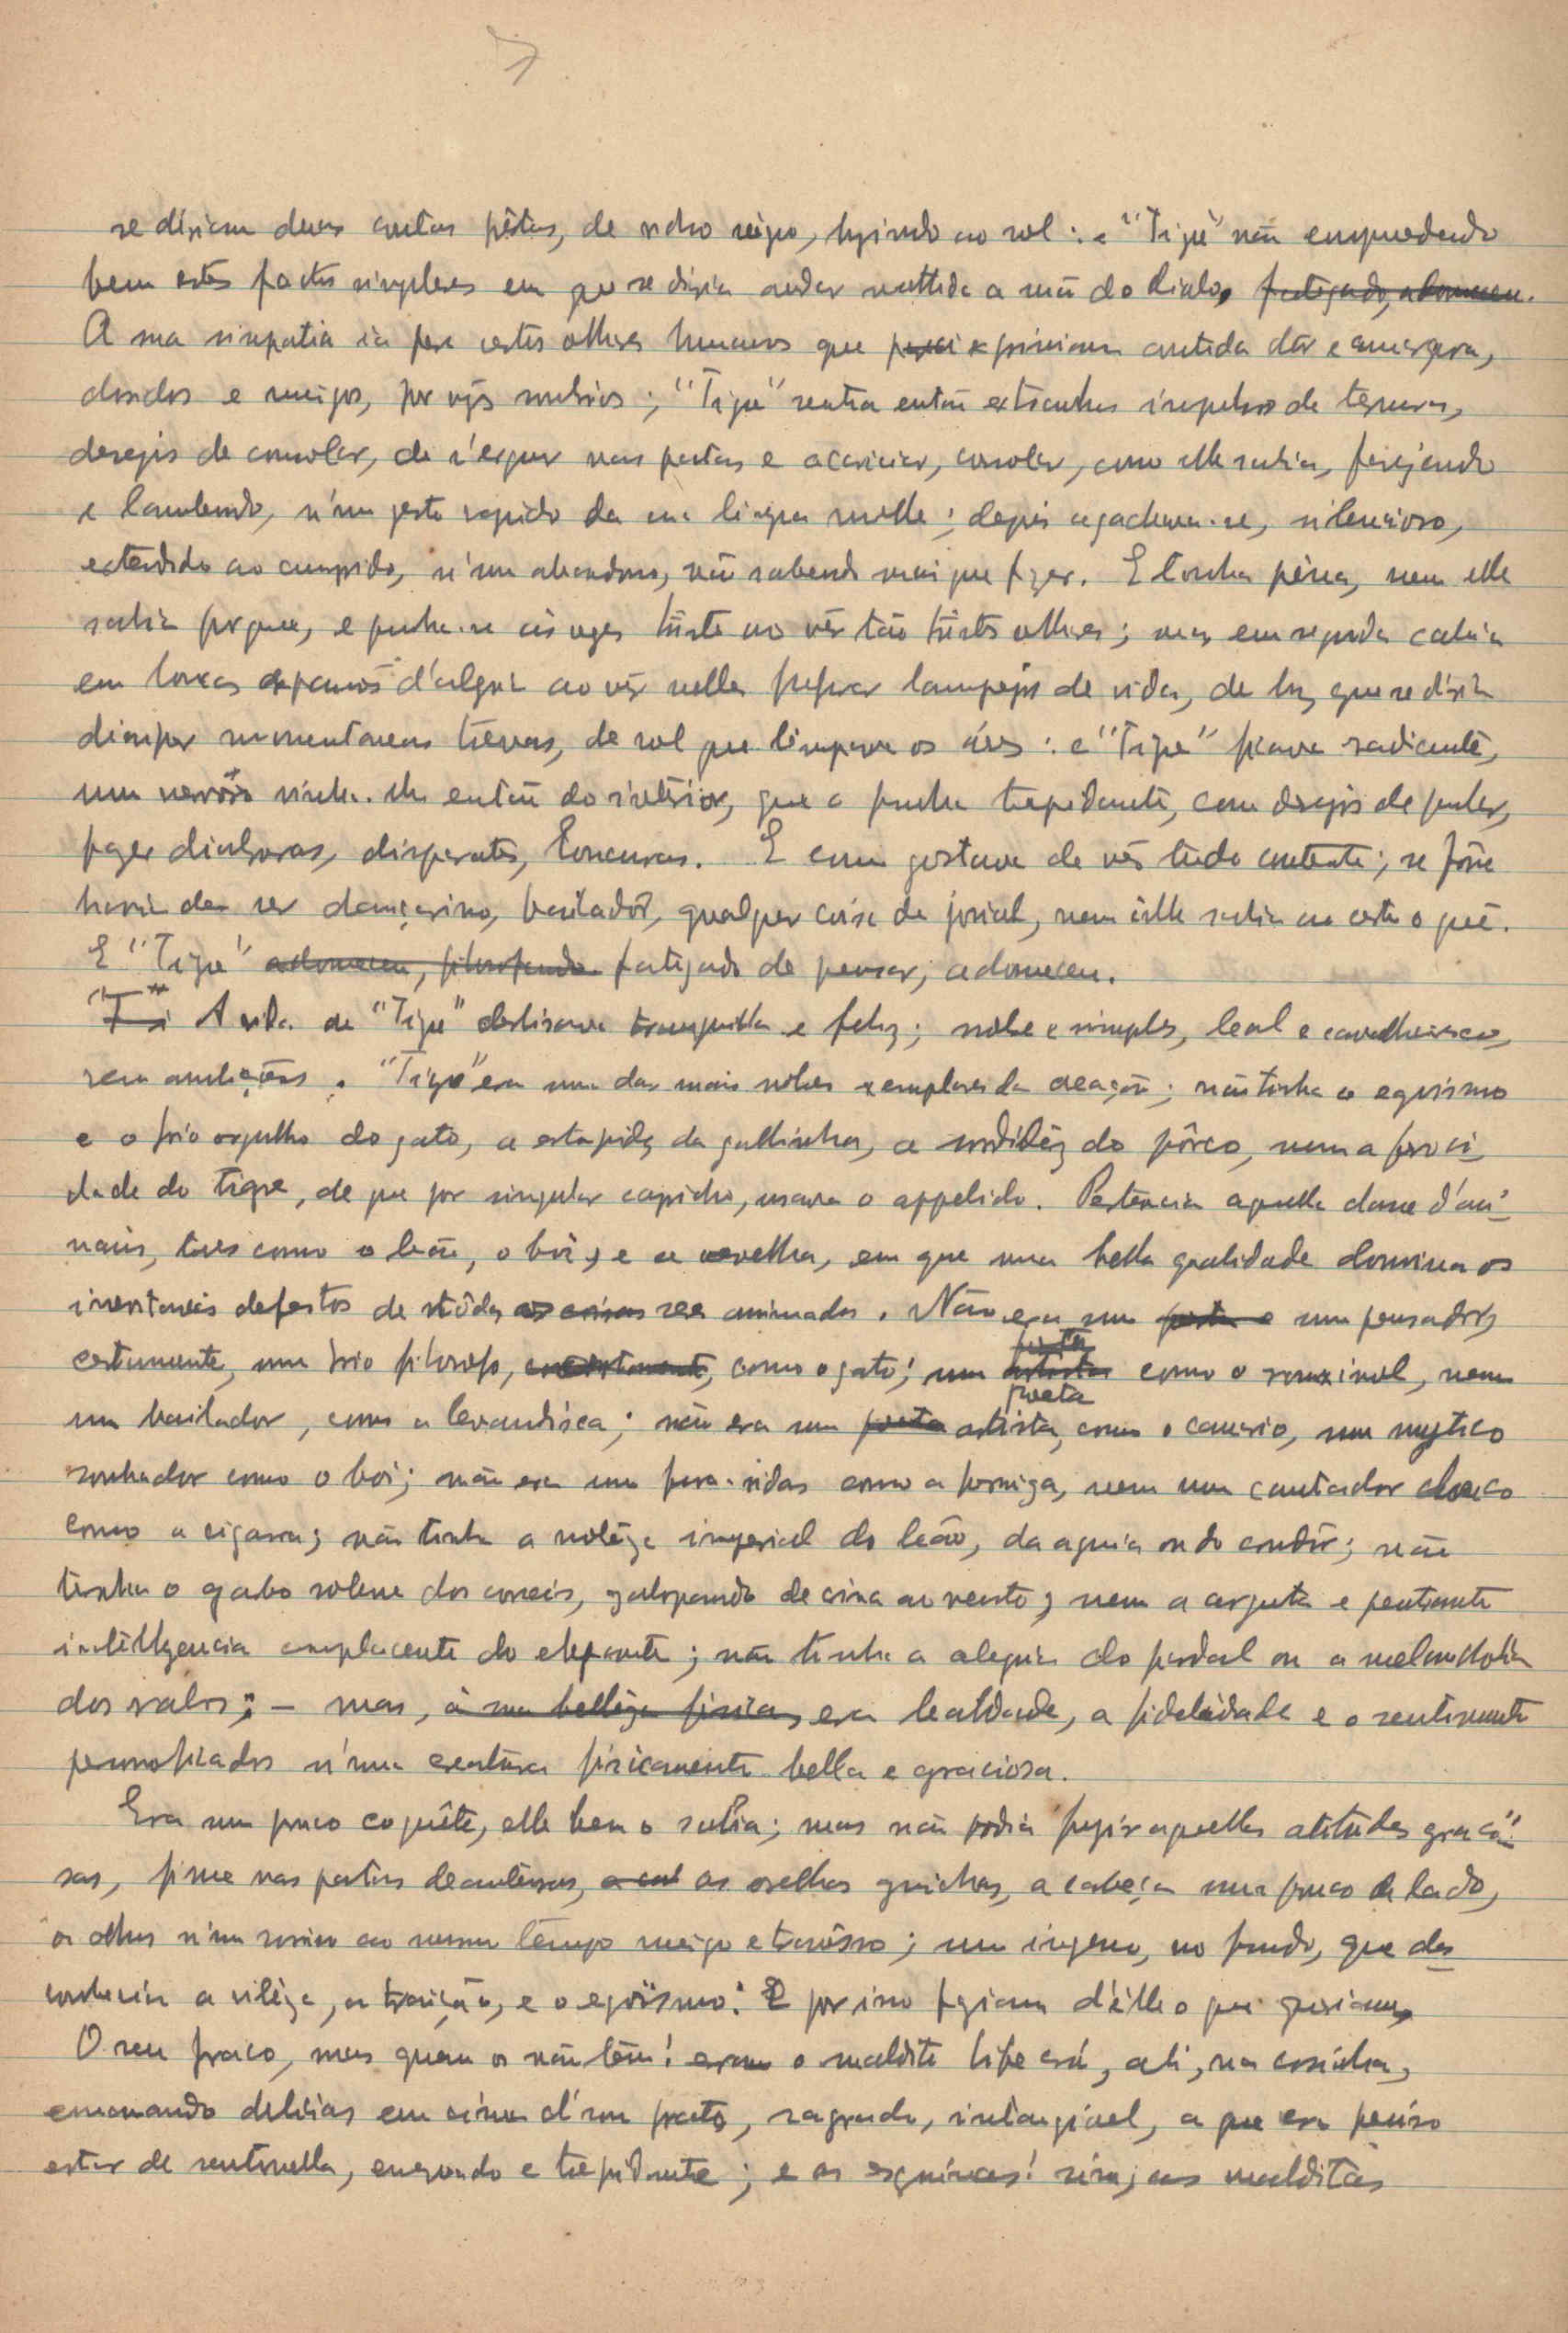 7
se diriam duas contas prêtas, de vidro meigo, luzindo ao sol: e "Tigre" não comprehendendo
bem estes factos simples em que se diria andar mettida a mão do diabo, fatigado, adormeceu.
A sua simpatia ia para certos olhares humanos que exprimiam contida dôr e amargura,
doridos e meigos, por vezes sombrios; "Tigre" sentia então extranhos impulsos de ternura,
desejos de consolar, de s'erguer nas patas e acariciar, consolar, como elle sabia, farejando
e lambendo, n'um gesto rapido da sua lingua molle; depois agachava-se, silencioso,
estendido ao comprido, n'um abandono, não sabendo mais que fazer. E tinha pêna, nem elle
sabia porque, e punha-se ás vezes triste ao vêr tão tristes olhares; mas em seguida cahia
em loucas d'alegria ao vêr nelles lampejos de vida, de luz, que se diria
dissipar momentaneas trevas, de sol que limpava os áres: e "Tigre" ficava radiante,
um nervôso vinha-lhe então do intérior, que o punha trepidante, com desejos de pular,
fazer diabruras, disparates, loucuras. E como gostava de vêr tudo contente; se fôsse
havia de ser dançarino, bailadôr, qualquer coisa de jovial, nem êlle sabia ao certo o quê.
E "Tigre" adormeceu, filosofando fatigado de pensar, adormeceu.
A vida de "Tigre" deslisava tranquilla e feliz; nobre e simples, leal e cavalheiresco,
sem ambições. "Tigre" era um dos mais nobres exemplares da creação; não tinha o egoismo
e o frio orgulho do gato, a estupidez da gallinha, a sordidêz do pôrco, nem a feroci-
dade do tigre, de que por singular capricho, usava o appelido. Pertencia aquella classe d'ani-
mais, taes como o leão, o boi, e a ovelha, em que uma bella qualidade domina os
inevitaveis defeitos de tôdos as coisas seres animados. Não era um poeta e um pensadôr,
certamente, um frio filosofo, como o gato; um artista poeta como o rouxinol, nem
um bailador, como a levandisca; não era um poeta artista, como o canario, um mystico
poeta
sonhador como o boi; não era um fura-vidas como a formiga, nem um cantador chocho
como a cigarra; não tinha a nobrêza imperial do leão, da aguia ou do condôr; não
tinha o garbo solene dos corceis, galopando de crina ao vento, nem a arguta e penetrante
intelligencia complacente do elefante; não tinha a alegria do pardal ou a melancholia
dos ralos; - mas, a sua bellêza fisica, era lealdade, a fidelidade e o sentimento
personificados n'uma creatura fisicamente bella e graciosa.
Era um pouco coquête, elle bem o sabia; mas não podia fugir aquellas atitudes gracio-
sas, firme nas patas deanteiras, as orelhas guichas, a cabeça um pouco de lado,
os olhos n'um sorriso ao mesmo tempo meigo e travêsso; um ingenuo, no fundo, que des-
conhecia a vilêza, a traição, e o egoïsmo. E por isso faziam d'êlle o que queriam,
O seu fraco, mas quem os não têm! eram o maldito bife crú, ali, na cosinha,
emanando delicias em cima d'um prato, sagrado, intangivel, a que era preciso
estar de sentinella, enervado e trepidante; e as esquinas! sim, as malditas